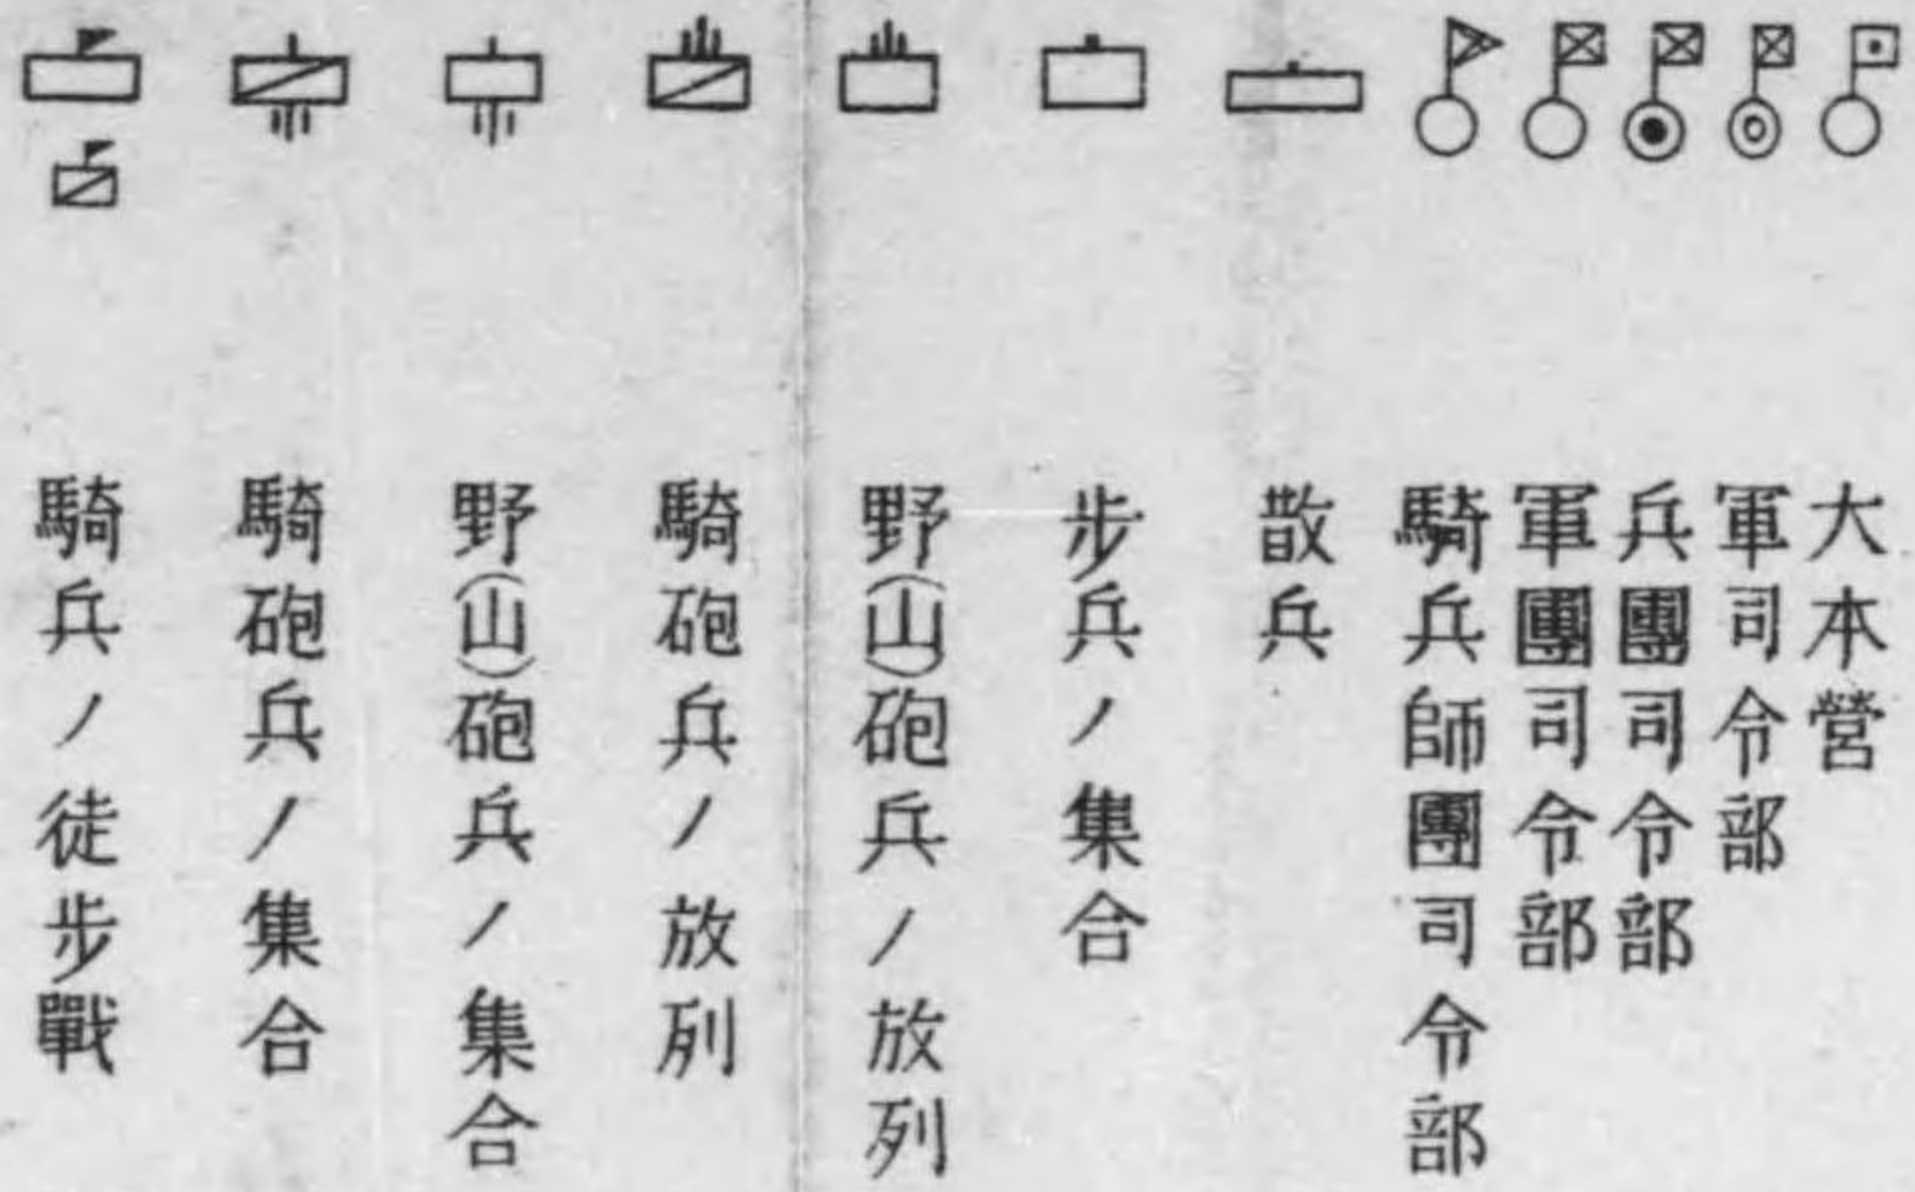 大本營
軍司令部
兵團司令部
軍團司令部
騎兵師團司令部
散兵
步兵ノ集合
野(山)砲兵ノ放列
騎砲兵ノ放列
野(山)砲兵ノ集合
騎砲兵ノ集合
騎兵ノ徒步戰